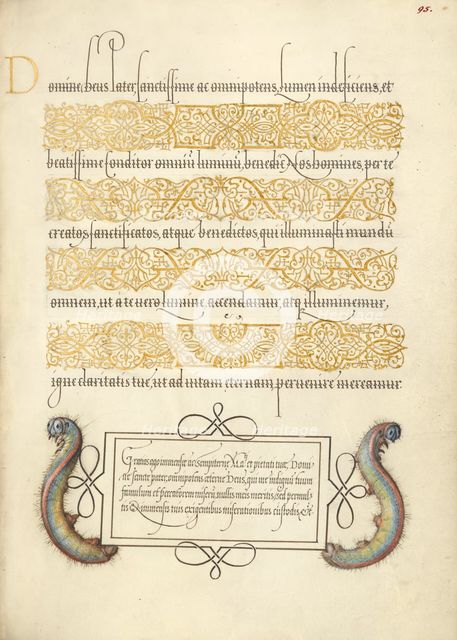 95.
Domine, Deus Pater, sanctissime ac omnipotens, Lumen indeficiens, et
beatissime Conditor omniũ luminũ, benedic Nos homines, per te
creatos, sanctificatos, atque benedictos, qui illuminasti mundũ
omnem, ut a te vero lumine accendamur, atq illuminemur,
igne claritatis tuę, ut ad vitam ęternam pervenire mereamur.
Gratias ago immensę ac Sempiternę et pietati tuæ, Domi
ne sancte pater, omnipotens æterne Deus, qui me indignũ tuum
famulum et peccatorem miserũ, nullis meis meritis, sed permul
tis Quinimmò tuis exigentibus miserationibus custodis, et
Heritage
Heritage